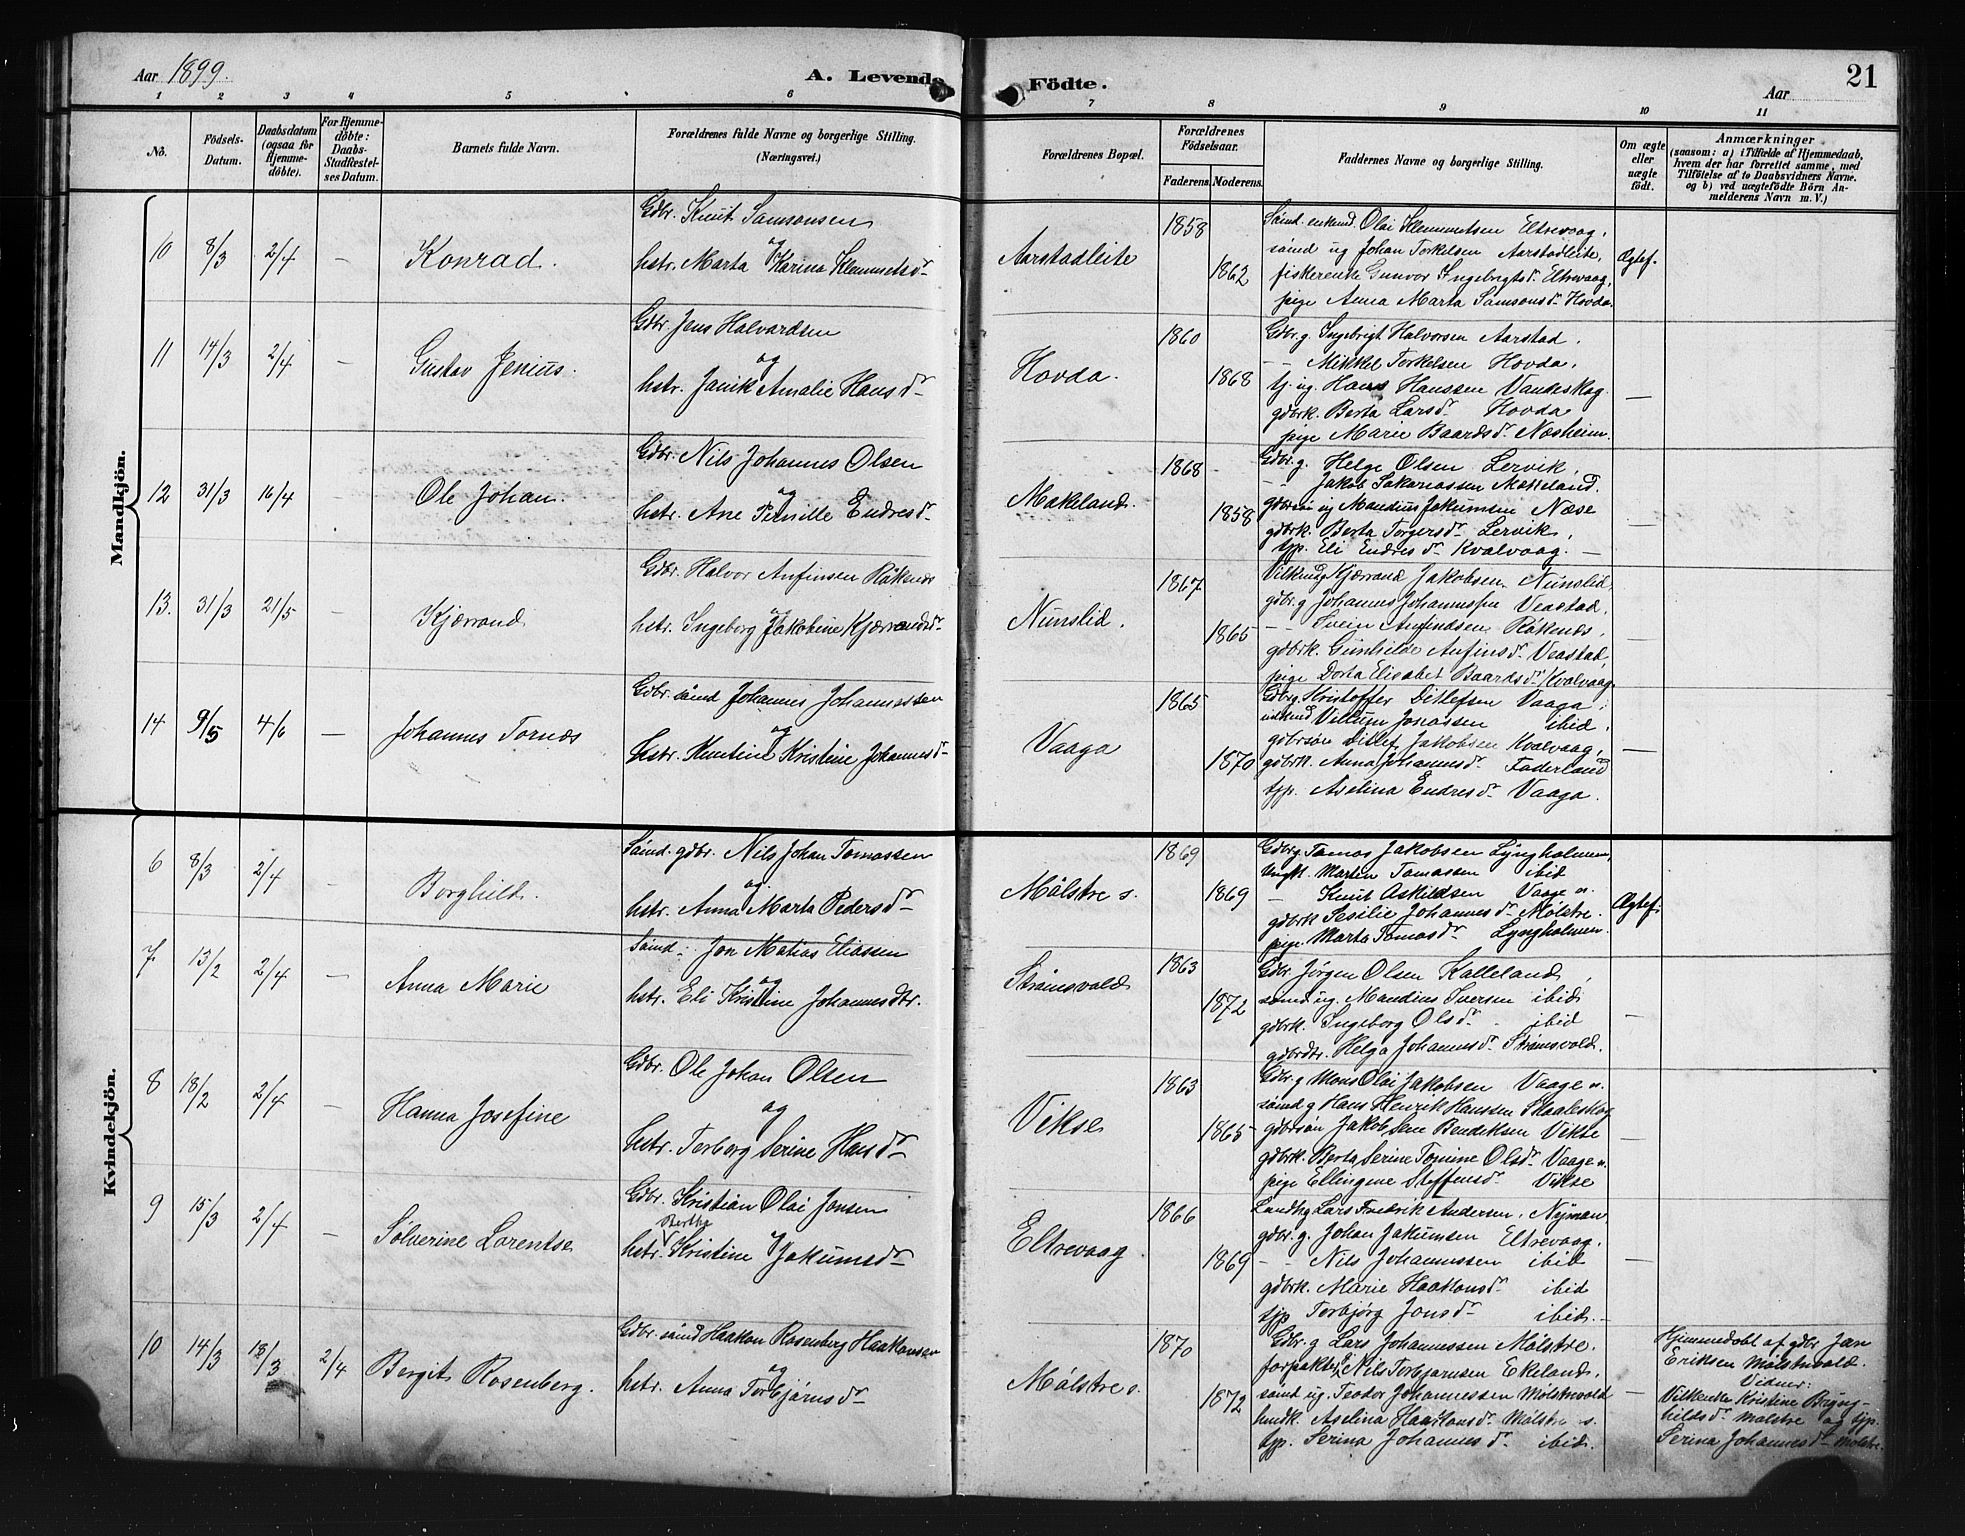 Aar 1899.
A. Levende Födte.
21
Aar
1 2 3 4 5 6 7 8 9 10 11
No.
Födsels-Datum.
Daabsdatum (ogsaa for Hjemmedöbte).
For Hjemmedöbte: Daabs-Stadfestelses Datum.
Barnets fulde Navn.
Forældrenes fulde Navne og borgerlige Stilling. (Næringsvei.)
Forældrenes Bopæl.
Forældrenes Födselsaar.
Faderens. Moderens.
Faddernes Navne og borgerlige Stilling.
Om ægte eller uægte födt.
Anmærkninger
(saasom: a) i Tilfælde af Hjemmedaab, hvem der har forrettet samme, med Tilföielse af to Daabsvidners Navne. og b) ved uægtefödte Börn Anmelderens Navn m. V.)
Mandkjön.
10 8/3 2/4 — Konrad.
Gdbr. Knut Samsonsen
og
hstr. Marta Karina Klemmetsdr
Aarstadleite
1858
1862
Sømd. enkemd. Olai Klemmetsen Eltrevaag,
sømd ug Johan Torkelsen Aarstadleite,
fiskerenke Gunvor Ingebrigtsdr Eltrevaag,
pige Anna Marta Samsonsdr Hovda.
Ægtef.
11 14/3 2/4 — Gustav Jenius.
Gdbr. Jens Halvardsen
og
hstr. Janik Amalie Hansdr
Hovda.
1860
1868
Gdbr. g. Ingebrigt Halvorsen Aarstad,
— Mikkel Torkelsen Hovda,
tj. ug. Hans Hanssen Vandeskog
gdbrk. Berta Larsdr Hovda
pige Marie Baardsdr Næsheim.
—
12 31/3 16/4 — Ole Johan.
Gdbr. Nils Johannes Olsen
og
hstr. Ane Pernille Endresdr
Mækeland.
1868
1858
Gdbr. g. Helge Olsen Lervik,
— Jakob Sakariassen Mækeland.
gdbrsøn ug Mandius Jakumsen Næse
gdbrk. Berta Torgersdr Lervik,
tjp. Eli Endresdr Kvalvaag. —
—
13. 31/3 21/5 — Kjærrand
Gdbr. Halvor Anfinsen Røkenes
og
hstr. Ingeborg Jakobine Kjærrandsdr
Nunslid.
1867
1865
Vilkmd Kjærrand Jakobsen Nunslid,
gdbr. g Johannes Johannessen Veastad,
— Svein Anfindsen Røkenes,
gdbrk. Gunhilde Anfinsdr Veastad,
pige Dorta Elisabet Baardsdr Kvalvaag.
—
14 9/5 4/6 — Johannes Tornæs
Gdbr. sømd Johannes Johannessen
og
hstr. Knutine Kristine Johannesdr
Vaaga
1865
1870
Gdbr. g. Kristoffer Ditlefsen Vaaga,
enkemd Villum Jonassen ibid,
gdbrsøn Ditlef Jakobsen Kvalvaag,
gdbrk. Anna Johannesdr Faderland
tjp. Aselina Endresdr Vaaga.
—
Kvindekjön.
6 8/3 2/4 — Borghild.
Sømd. gdbr. Nils Johan Tomassen
og
hstr. Anna Marta Pedersdr
Mølstre s.
1869
1869
Gdbr g Tomas Jakobsen Lyngholmen,
ungk. Martin Tomassen ibid
— Knut Askildsen Vaage n.
gdbrk Sesilie Johannesdr Mølstre.
pige. Marta Tomasdr Lyngholmen.
Ægtef.
7 13/2 2/4 — Anna Marie
Sømd. Jon Matias Eliassen
og
hstr. Eli Kristine Johannesdtr.
Strømsvold
1863
1872
Gdbr. Jørgen Olsen Kalleland,
sømd ug. Mandius Iversen ibid,
gdbrk. Ingeborg Olsdr ibid
gdbrdtr. Helga Johannesdr Strømsvold.
—
8 18/2 2/4 — Hanna Josefine
Gdbr. Ole Johan Olsen
og
hstr. Torborg Serine Hansdr
Vikse
1863
1865
Gdbr. g Mons Olai Jakobsen Vaage n.
sømd g Hans Henrik Hanssen Skaaleskog
gdbrsøn Jakob Sem Bendiksen Vikse
gdbrk. Berta Serine Tomine Olsdr Vaage n.
pige Ellingene Steffensdr Vikse
—
9 15/3 2/4 — Sølverine Lorentse
Gdbr. Kristian Olai Jonsen
og
Berthe
hstr. Kristine Jakumsdr
Eltrevaag
1866
1869
Landhg Lars Fredrik Andersen, Nyman,
gdbr. g. Johan Jakumsen Eltrevaag,
— Nils Johannessen ibid
gdbrk. Marie Haakonsdr ibid
tjp Torbjørg Jonsdr ibid.
—
10 14/3 18/3 2/4 Bergit Rosenberg.
Gdbr. sømd Haakon Rosenberg Haakonsen
og
hstr. Anna Torbjørnsdr
Mølstre s.
1870
1872
Gdbr. g Lars Johannessen Mølstre.
forpakter g Nils Torbjørnsen Ekeland,
sømd ug. Teodor Johannessen Mølstrevold
hmdk. Aselina Haakonsdr Mølstre s.
tjp. Serina Johannesdr ibid.
—
Hjemmedøbt af gdbr Jan
Eriksen Mølstrevold.
Vidner:
Vilkenke Kristine Bryng-
hildsdr Mølstre og tjp.
Serina Johannesdr Mølstre.